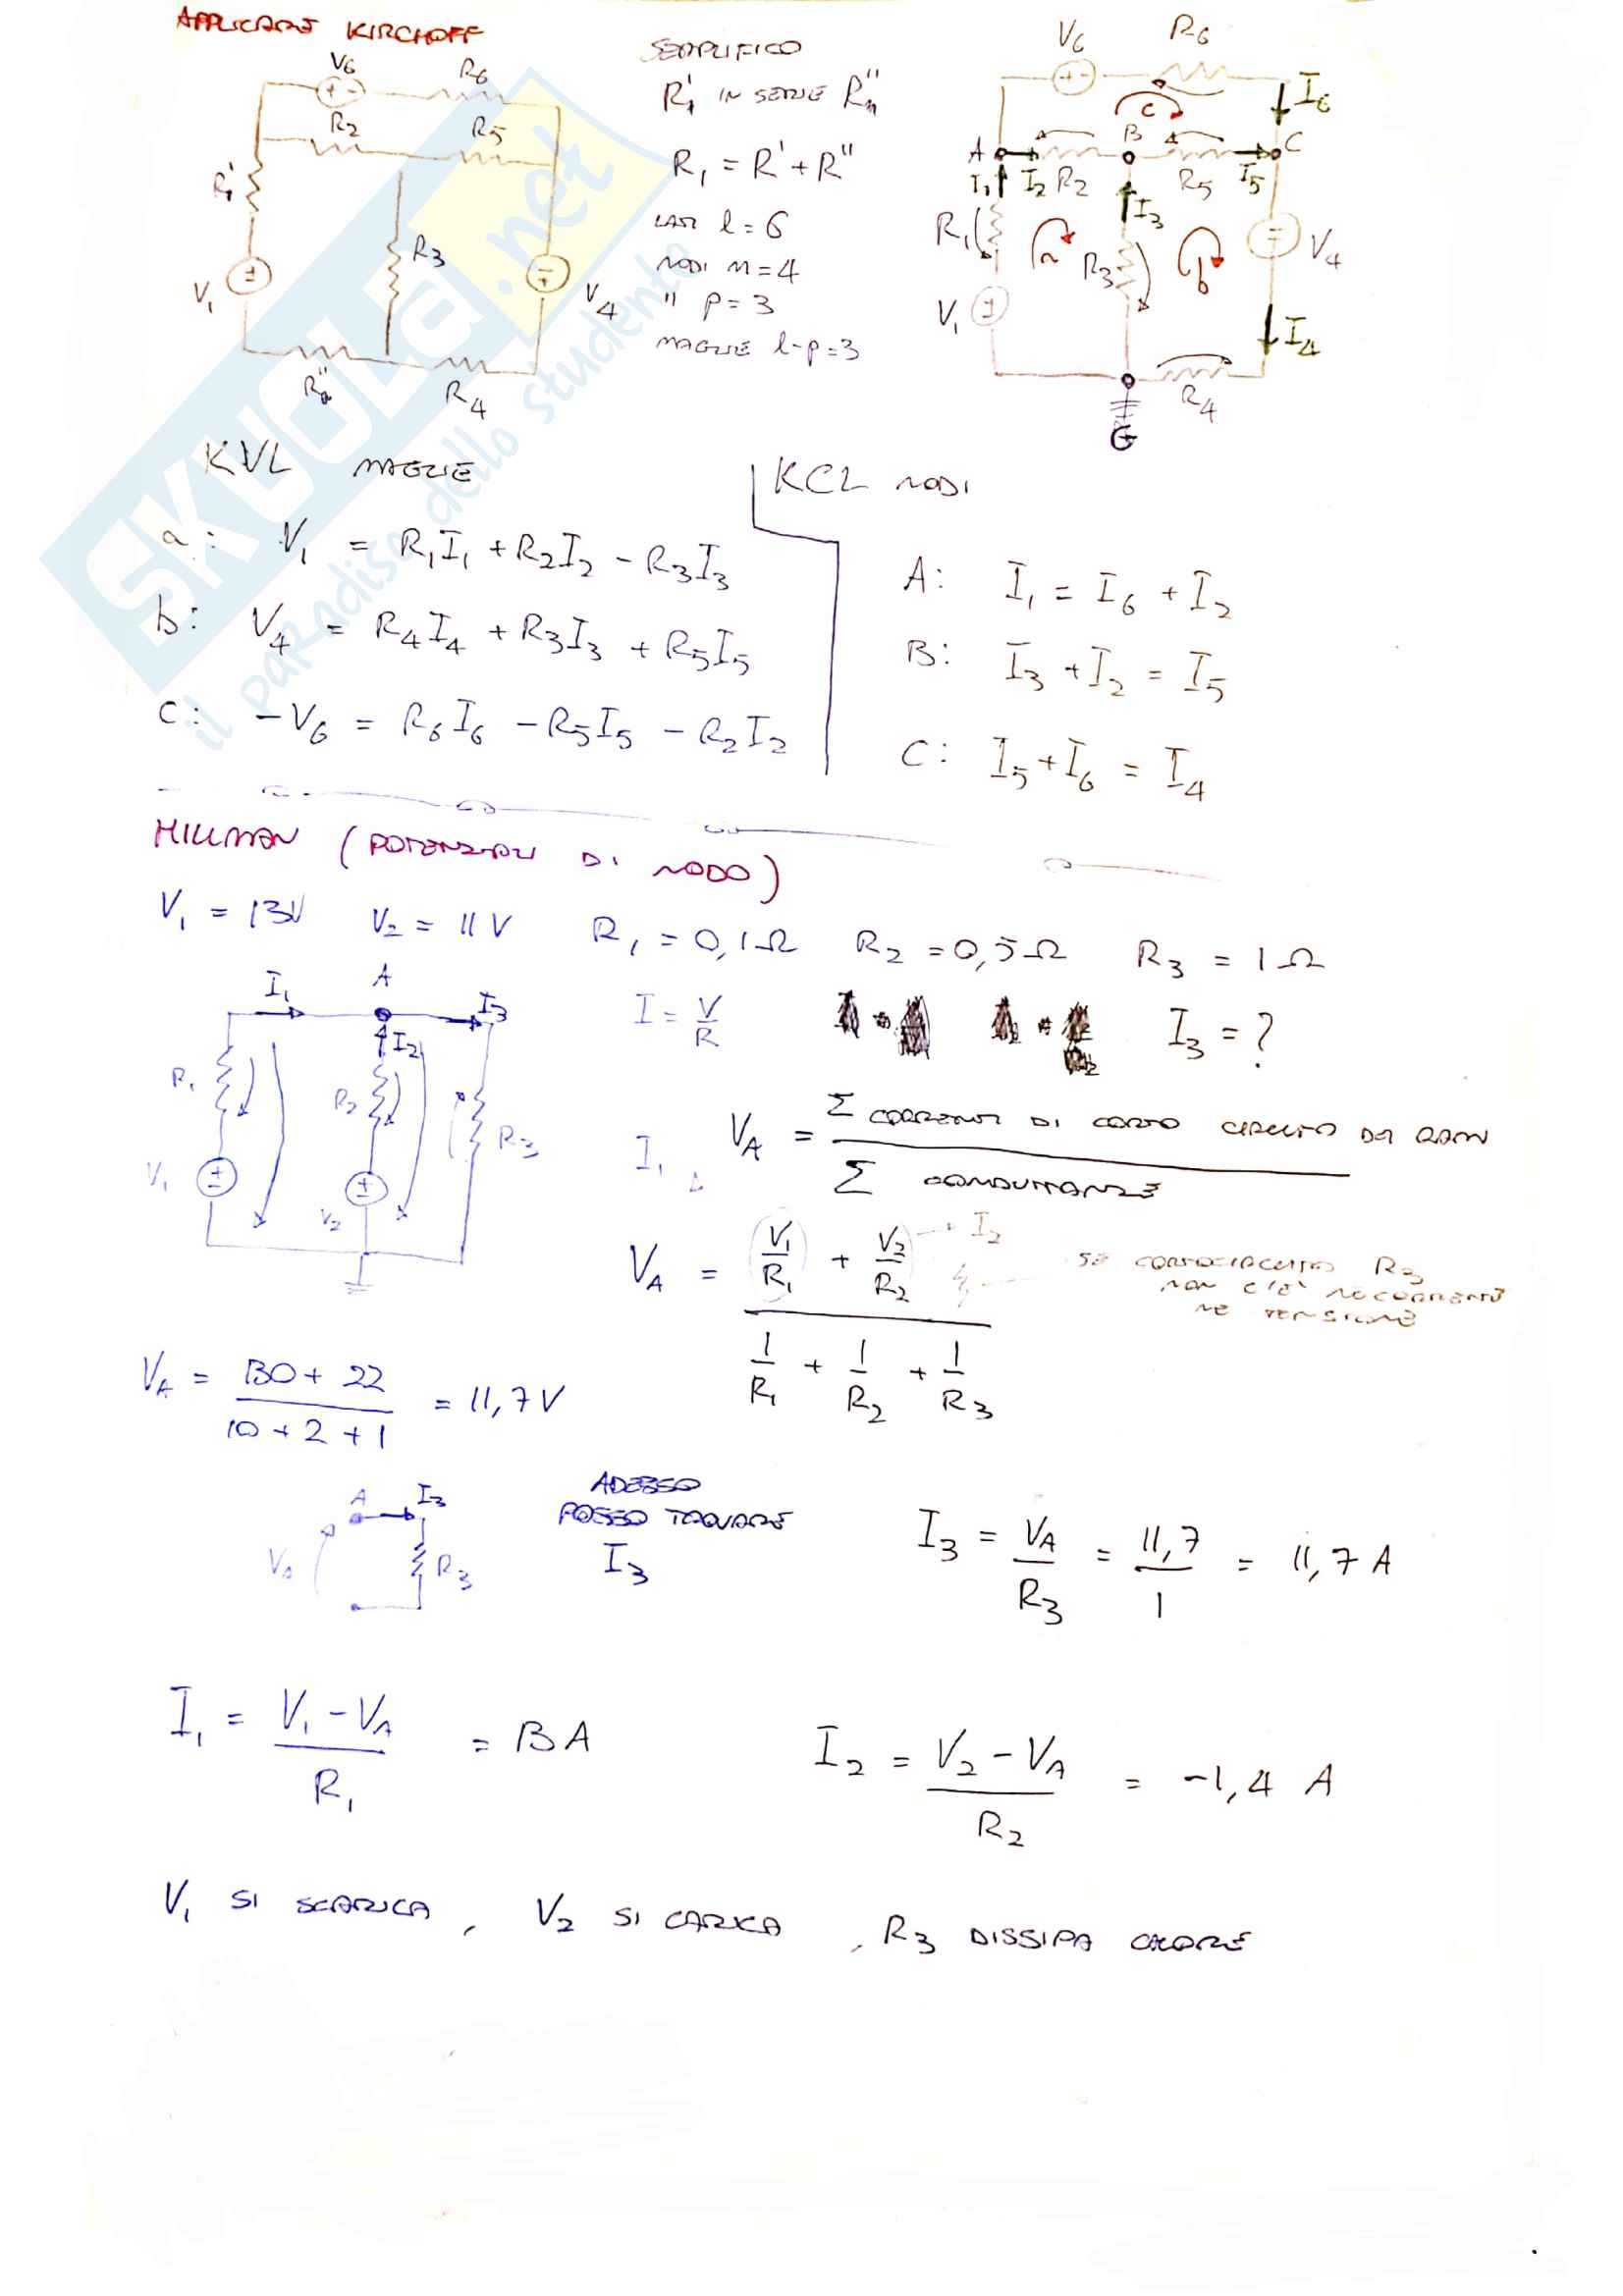 APPLICARE KIRCHOFF
V6
R6
R2
R5
R1'
R3
V1
V4
R1''
R4
SEMPLIFICO
R1' IN SERIE R1''
R1 = R' + R''
LATI l = 6
NODI n = 4
" p = 3
MAGLIE l-p = 3
V6
R6
I6
c
A
B
C
I1
I2
R2
R5
I5
R1
I3
a
R3
b
V4
V1
I4
R4
G
KVL MAGLIE
a: V1 = R1I1 + R2I2 - R3I3
b: V4 = R4I4 + R3I3 + R5I5
C: -V6 = R6I6 - R5I5 - R2I2
KCL NODI
A: I1 = I6 + I2
B: I3 + I2 = I5
C: I5 + I6 = I4
MILLMAN (POTENZIALI DI NODO)
V1 = 13V V2 = 11V R1 = 0,1Ω R2 = 0,5Ω R3 = 1Ω
I = V/R
I3 = ?
I1
A
I3
I2
R1
R2
R3
V1
V2
I1
VA = Σ CORRENTI DI CORTO CIRCUITO DEI RAMI / Σ CONDUTTANZE
VA = (V1/R1 + V2/R2) / (1/R1 + 1/R2 + 1/R3)
I2
SE CORTOCIRCUITO R3
NON C'È NE CORRENTE
NE TENSIONE
VA = (130 + 22) / (10 + 2 + 1) = 11,7V
A
I3
VA
R3
ADESSO
POSSO TROVARE
I3
I3 = VA/R3 = 11,7/1 = 11,7 A
I1 = (V1 - VA)/R1 = 13 A
I2 = (V2 - VA)/R2 = -1,4 A
V1 SI SCARICA, V2 SI CARICA, R3 DISSIPA CALORE
SKUOLA.net
il paradiso dello studente